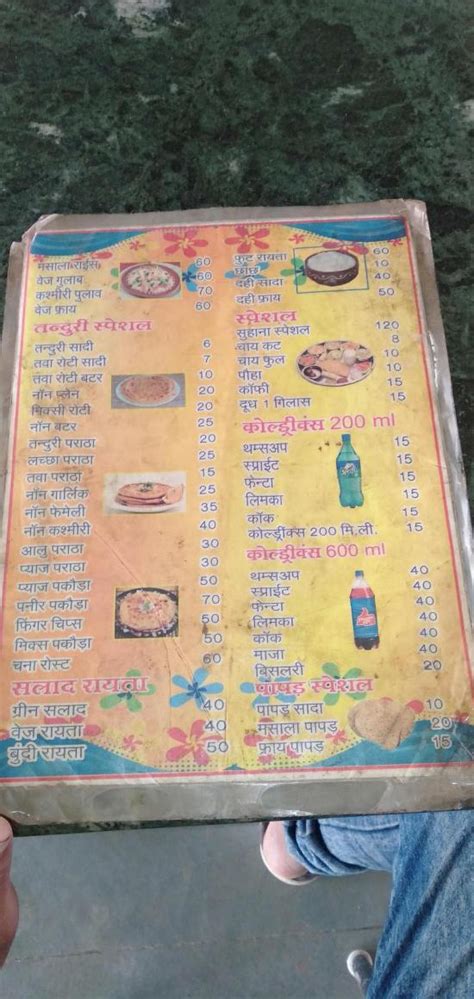 मसाला राईस 60
वेज गुलाब 60
कश्मीरी पुलाव 70
वेज फ्राय 60
तन्दुरी स्पेशल
तन्दुरी सादी 6
तवा रोटी सादी 7
तवा रोटी बटर 10
नॉन प्लेन 20
मिक्सी रोटी 20
नॉन बटर 25
तन्दुरी पराठा 20
लच्छा पराठा 25
तवा पराठा 15
नॉन गार्लिक 25
नॉन फेमेली 35
नॉन कश्मीरी 40
आलु पराठा 30
प्याज पराठा 30
प्याज पकौडा 50
पनीर पकौडा 70
फिंगर चिप्स 50
मिक्स पकौडा 50
चना रोस्ट 60
सलाद रायता
ग्रीन सलाद 40
वेज रायता 40
बुंदी रायता 50
फ्रुट रायता 60
छाछ 10
दही सादा 40
दही फ्राय 50
स्पेशल
सुहाना स्पेशल 120
चाय कट 8
चाय फुल 10
पौहा 15
कॉफी 15
दूध 1 गिलास 15
कोल्ड्रीक्स 200 ml
थम्सअप 15
स्प्राईट 15
फेन्टा 15
लिमका 15
कॉक 15
कोल्ड्रींक्स 200 मि.ली. 15
कोल्ड्रीक्स 600 ml
थम्सअप 40
स्प्राईट 40
फेन्टा 40
लिमका 40
कॉक 40
माजा 40
बिसलरी 20
पापड़ स्पेशल
पापड़ सादा 10
मसाला पापड़ 20
फ्राय पापड़ 15